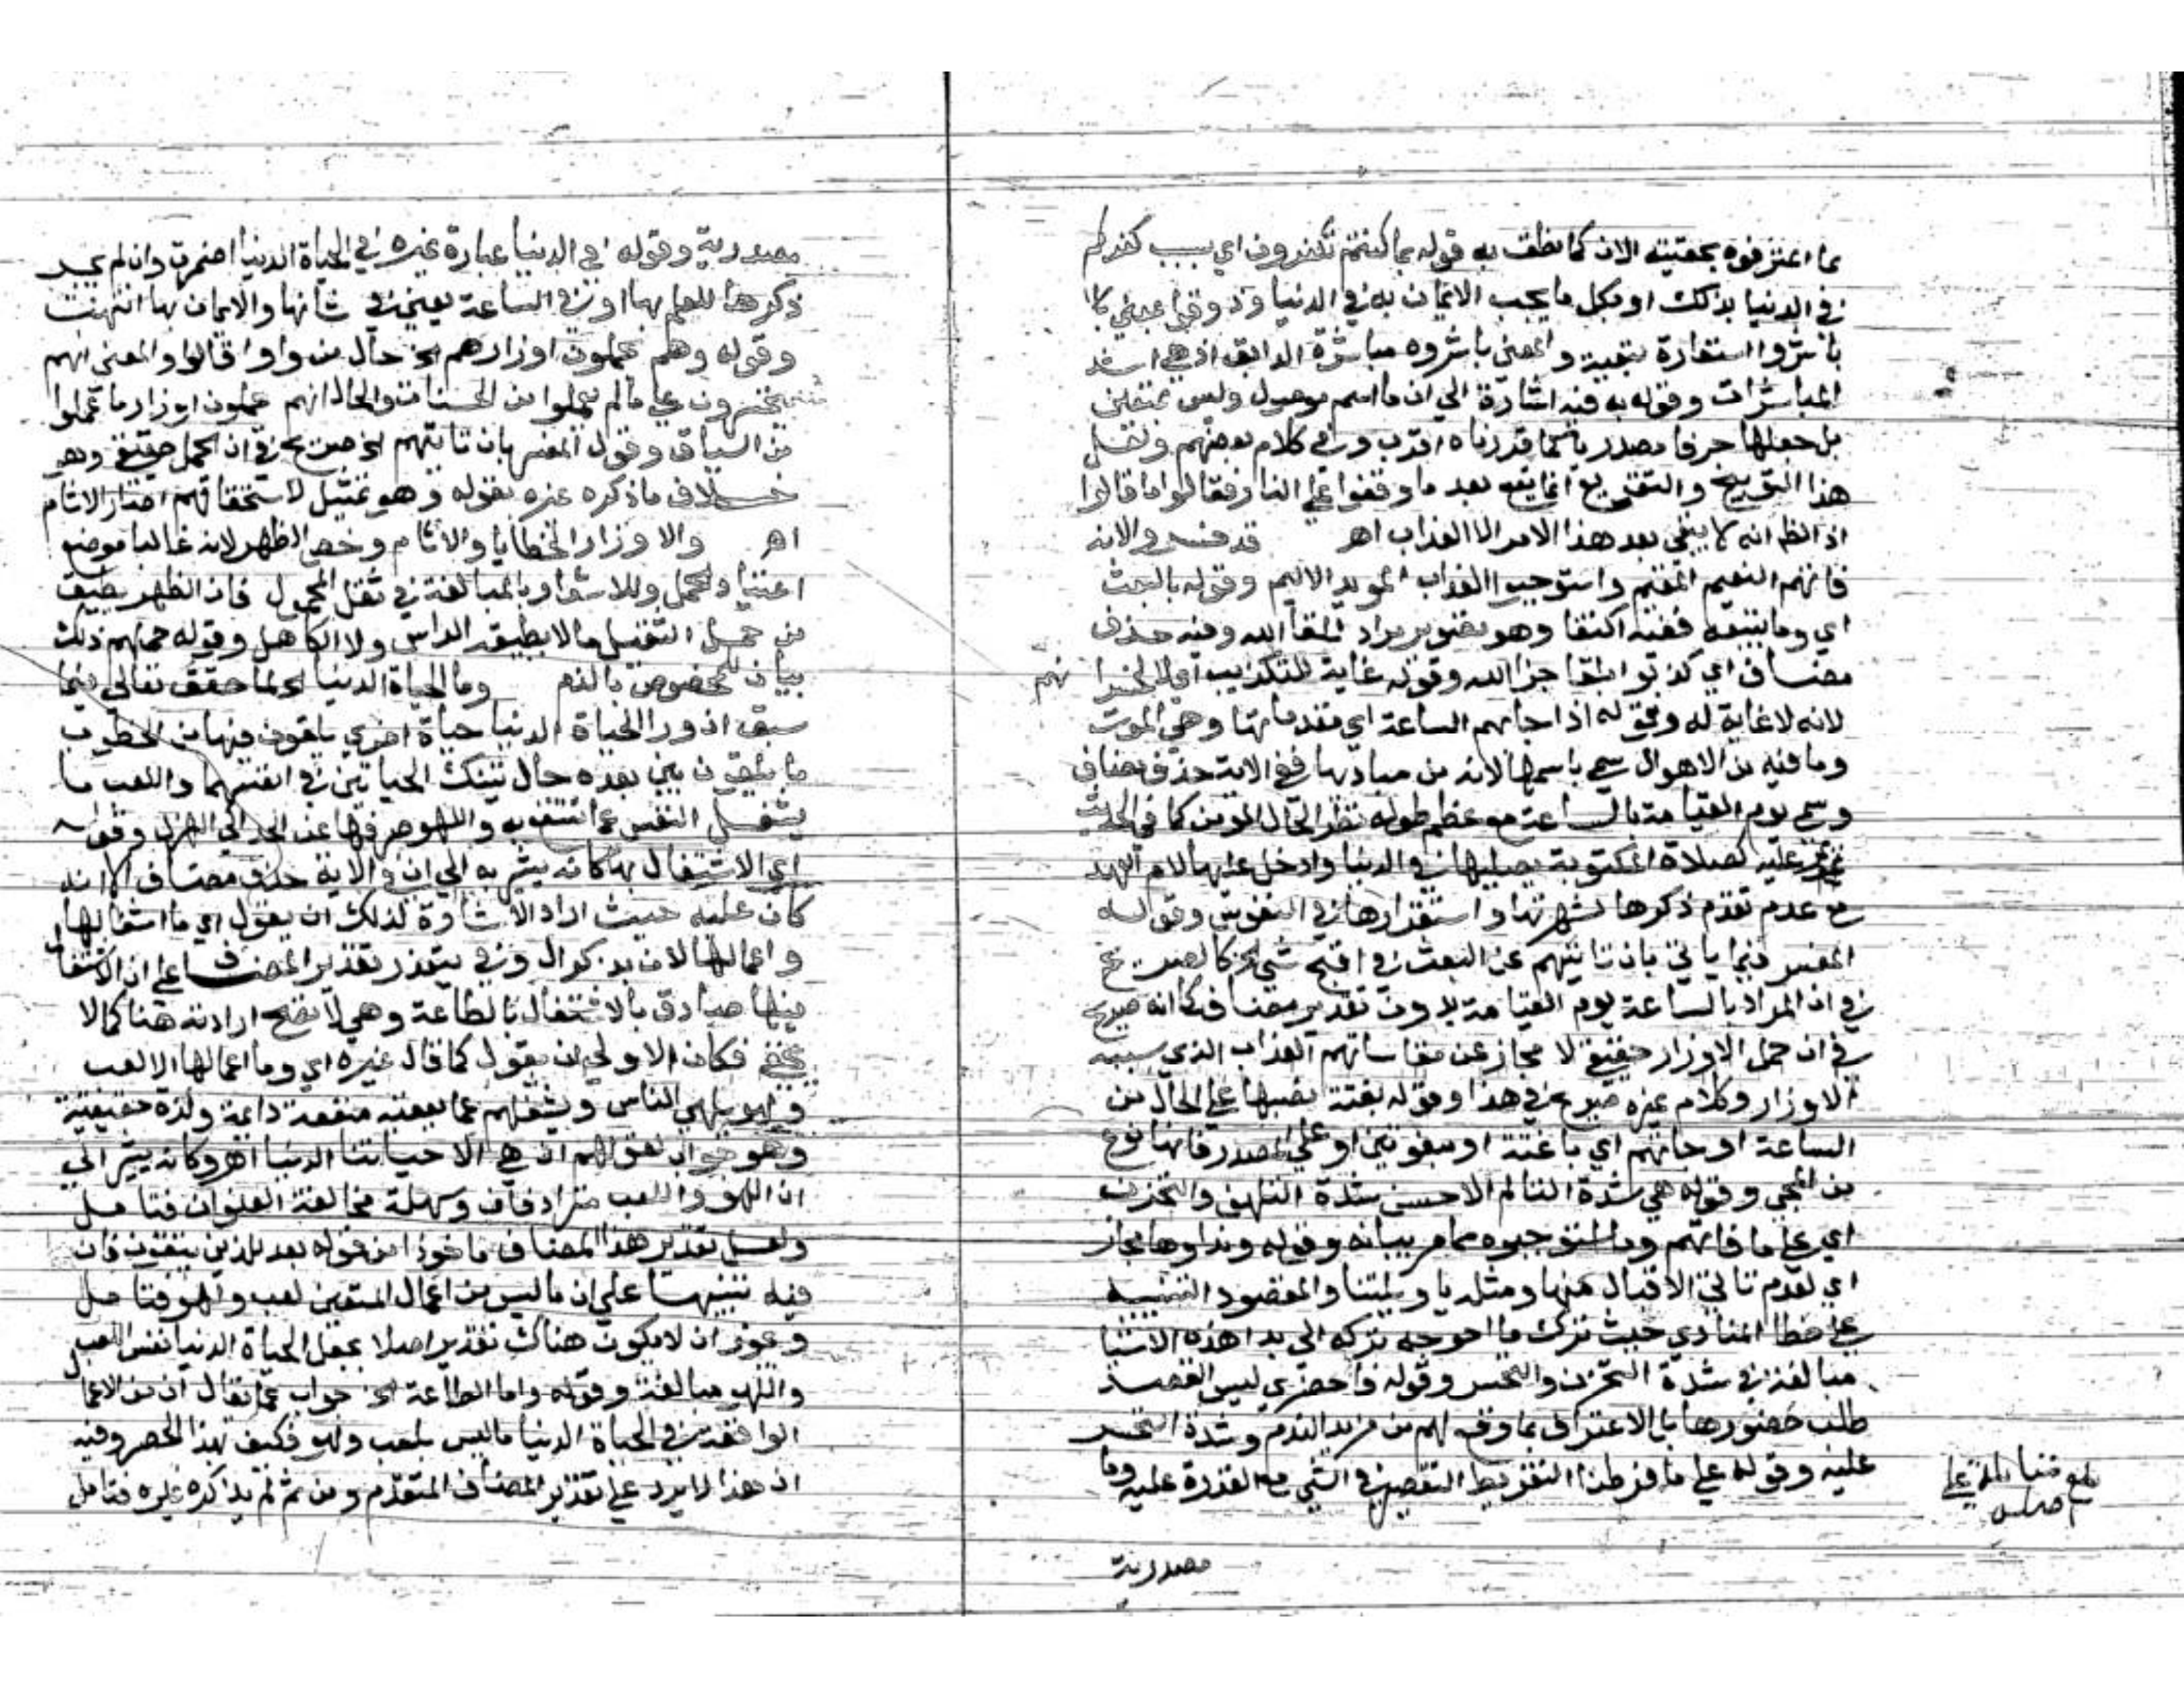 بما اعترفوه بحقيته الان كما نطف به قوله بما كنتم تكفرون اي بسبب كفركم
في الدنيا بذلك او بكل ما يجب الايمان به في الدنيا وذوقوا بمعني
باشروا استعارة تبعية والمعني باشروه مباشرة الذايق اذ هي اشد
المباشرات وقوله به فيه اشارة الي ان ما اسم موصول وليس بمتعين
بل جعلها حرفا مصدريا كما قدرناه اقرب وفي كلام بعضهم ولعل
هذا التوبيخ والتقريع انما يقع بعد ما وقفوا علي النار فقالوا ما قالوا
اذ الظ انه لا يبقي بعد هذا الامر الا العذاب اهـ قد خسر الاية
فاتهم النعيم المقيم واستوجبوا العذاب المويد الاليم وقوله بالبعث
اي وما يتبعه ففيه اكتفا وهو تصوير مراد بلقا الله وفيه حذف
مضاف اي كذبوا بلقا جزا الله وقوله غاية للتكذيب اي لا لخسرانهم
لانه لا غاية له وقوله اذا جاتهم الساعة اي مقدماتها وهي الموت
وما فيه من الاهوال سمي باسمها لانه من مباديها ففي الاية حذف مضاف
وسمي يوم القيامة بالساعة مع عظم طوله نظرا لحال المومن كما في الحديث
تمر عليه كصلاة المكتوبة يصليها في الدنيا وادخل عليها لام العهد
مع عدم تقدم ذكرها لشهرتها واستقرارها في النفوس وقوله
المفسر فيما ياتي بان تاتيهم عن البعث في اقبح شي الخ كالصريح
في ان المراد بالساعة يوم القيامة بدون تقدير مضاف كما انه صريح
في ان حمل الاوزار حقيقة لا مجاز عن مقاساتهم العذاب الذي سببه
الاوزار وكلام غيره صريح في هذا وقوله بغتة نصبها علي الحال من
الساعة او جاتهم اي باغتة او مبغوتين او علي المصدر فانها نوع
من المجي وقوله هي شدة التالم الاحسن شدة التلهف والتحزن
اي علي ما فاتهم وما استوجبوه مما مر بيانه وقوله ونداوها مجاز
اي لعدم تاتي الاقبال منها ومثله يا ويلتنا والمقصود التنبيه
علي خطا المنادي حيث ترك ما احوجه تركه الي ندا هذه الاشيا
مبالغة في شدة التحزن والتحسر وقوله فاحضري ليس القصد
طلب حضورها بل الاعتراف بما وقع لهم من مزيد الندم وشدة التحسر
عليه وقوله علي ما فرطنا التفريط التقصير في الشي مع القدرة عليه وما
مصدرية
مصدرية وقوله اي الدنيا عبارة غيره في الحياة الدنيا اضمرت وان لم يجر
ذكرها للعلم بها او في الساعة يعني في شانها والايمان بها انتهت
وقوله وهم يحملون اوزارهم الخ حال من واو قالوا والمعني انهم
يتحسرون علي ما لم يعملوا من الحسنات والحال انهم يحملون اوزار ما عملوا
من السيات وقول المفسر بان تاتيهم الخ صريح في ان الحمل حقيقي وهو
خلاف ما ذكره غيره بقوله وهو تمثيل لاستحقاقهم اصار الاثام
اهـ والاوزار الخطايا والاثام وخص الظهر لانه غالبا موضع
اعتياد الحمل وللاشعار بالمبالغة في ثقل المحمول فان الظهر يطيق
من حمل الثقيل ما لا يطيقه الراس ولا الكاهل وقوله حملهم ذلك
بيان للمخصوص بالذم وما الحياة الدنيا الخ لما حقق تعالي فيما
سبق ان ورا الحياة الدنيا حياة اخري يلقون فيها من الخطوب
ما يلقون بين بعده حال تينك الحياتين في انفسهما واللعب ما
يشغل النفس عما تنتفع به واللهو صرفها عن الجد الي الهزل وقوله
اي الاشتغال بها كانه يشير به الي ان في الاية حذف مضاف الا انه
كان عليه حيث اراد الاشارة لذلك ان يقول اي ما اشغالها
واعمالها لان بذكر ال وفي يتعذر تقدير المضاف علي ان الاشتغال
فيها صادق بالاشتغال بالطاعة وهي لا تصح ارادته هنا كما لا
يخفي فكان الاولي ان يقول كما قال غيره اي وما اعمالها الا لعب
ولهو يلهي الناس ويشغلهم عما يعقبه منفعة دايمة ولذة حقيقية
وهو جواب لقولهم ان هي الا حياتنا الدنيا اهـ وكانه يشير الي
ان اللهو واللعب مترادفان وسهله مخالفة العنوان فتامل
ولعل تقدير هذا المضاف ماخوذ من قوله بعد للذين يتقون فان
فيه تنبيها علي ان ما ليس من اعمال المتقين لعب ولهو فتامل
ويجوز ان لا يكون هناك تقدير اصلا بجعل الحياة الدنيا نفس اللعب
واللهو مبالغة وقوله واما الطاعة الخ جواب عما يقال ان من الاعمال
الواقعة في الحياة الدنيا ما ليس بلعب ولهو فكيف هذا الحصر وفيه
ان هذا لا يرد علي تقدير المضاف المتقدم ومن ثم لم يذكره غيره فتامل
بلغ مقابلة علي
اصله